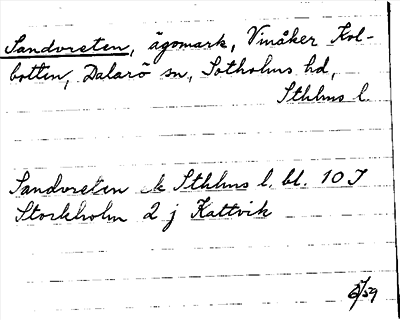 Sandvreten, ägomark, Vinåker Kol-
botten, Dalarö sn, Sotholms hd,
Sthlms l.
Sandvreten ek Sthlms l. bl. 10 I
Stockholm 2 j Kattvik
/59